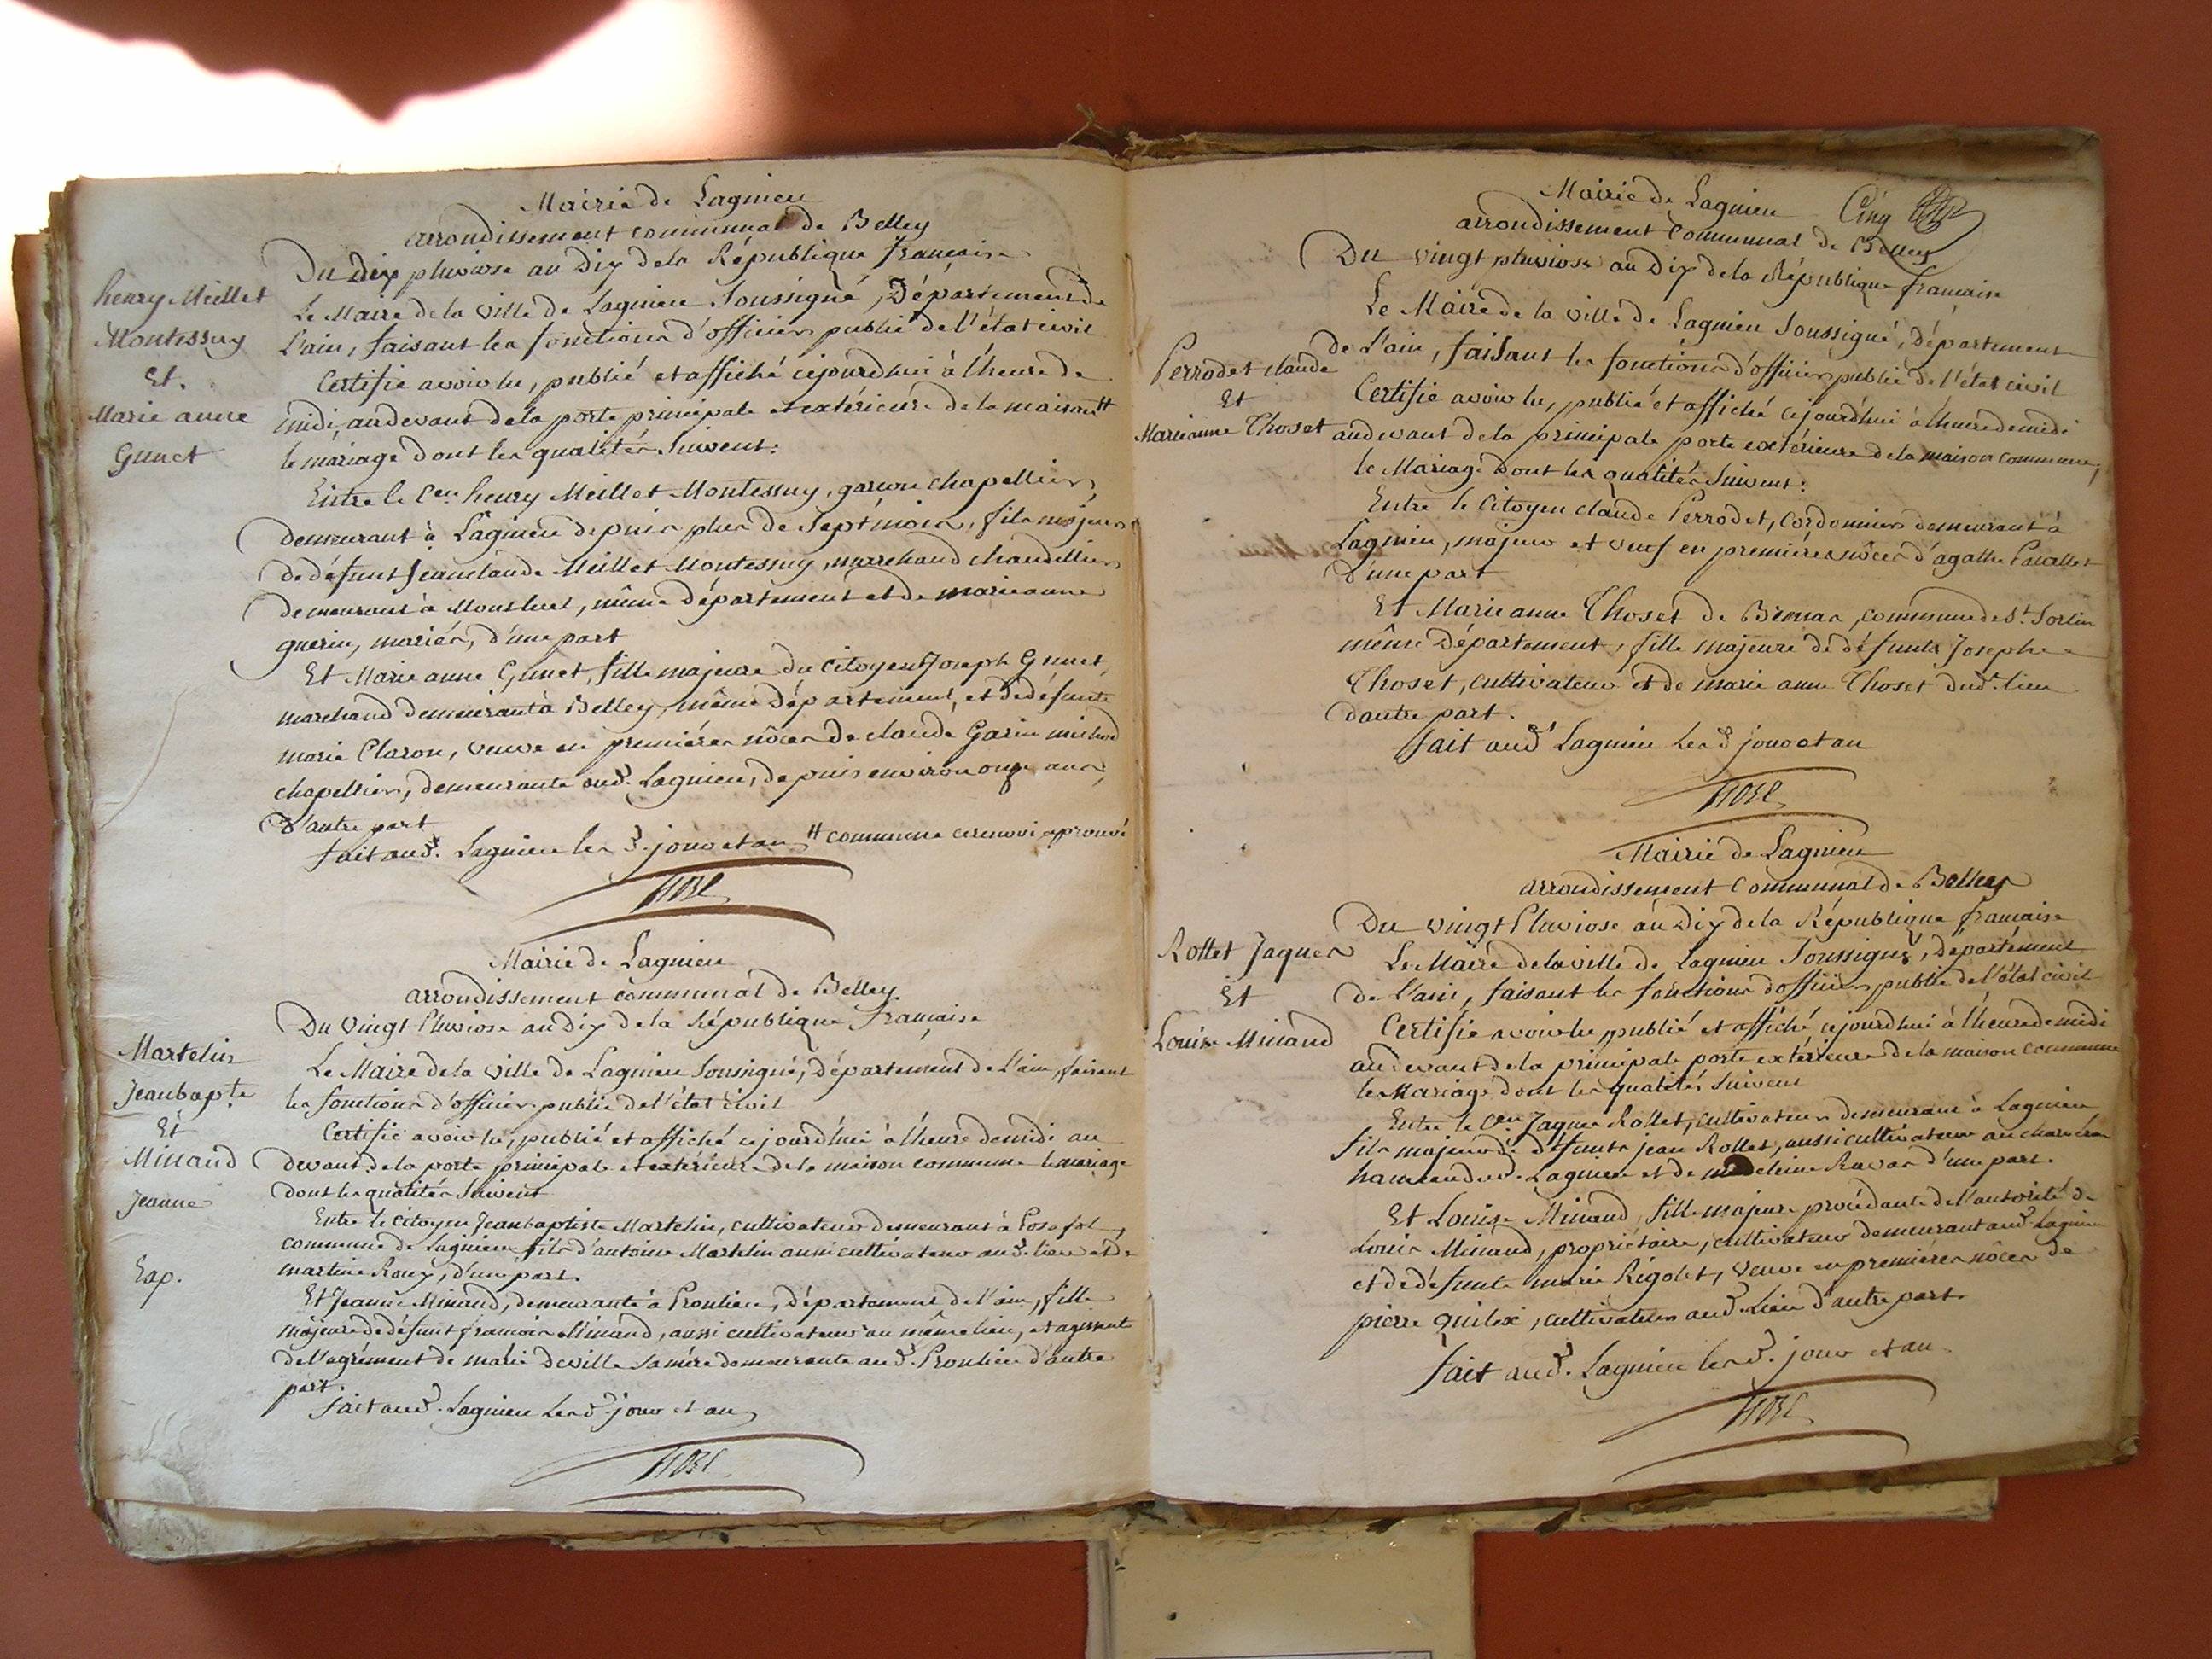 Mairie de Lagnieu
arrondissement communal de Belley
Du dix pluviose an dix de la République française
henry Meillet
Montessuy
Et.
Marie anne
Gunet
Le Maire de la ville de Lagnieu Soussigné, Département de
L'ain, faisant les fonctions d'officier public de l'état civil
Certifie avoir lu, publié et affiché cejourd'hui à l'heure de
midi, audevant de la porte principale et extérieure de la maison #
le mariage dont les qualités Suivent:
Entre le Cen. henry Meillet Montessuy, garcon chapellier,
demeurant à Lagnieu depuis plus de Sept mois, fils majeur
de défunt Jeanclaude Meillet Montessuy, marchand chandellier
demeurant à Montluel, même département et de marieanne
guerin, mariés, d'une part
Et Marie anne Gunet, fille majeure du Citoyen Joseph Gunet,
marchand demeurant à Belley, même département, et de défunte
marie Claron, veuve en premières nôces de claude Garin michod
chapellier, demeurante aud. Lagnieu, depuis environ onze ans,
d'autre part
fait aud. Lagnieu les d. jour et an # commune cerenvoi aprouvé
Mairie de Lagnieu
arrondissement communal de Belley
Du vingt Pluviose an dix de la République française
Martelin
Jeanbapte.
Et
Minaud
Jeanne
Exp.
Le Maire de la ville de Lagnieu Soussigné, département de L'ain, faisant
les fonctions d'officier public de l'état civil
Certifie avoir lu, publié et affiché cejourd'hui à l'heure de midi au
devant de la porte principale et extérieure de la maison commune le mariage
dont les qualités Suivent
Entre le citoyen Jeanbaptiste Martelin, cultivateur demeurant à Posafol,
commune de Lagnieu fils d'antoine Martelin aussi cultivateur aud. lieu et de
martine Roux, d'une part.
Et Jeanne Minaud, demeurante à Proulieu, département de l'ain, fille
majeure de défunt francois Minaud, aussi cultivateur au même lieu, et agissant
de l'agrément de marie deville Sa mère demeurante aud. Proulieu d'autre
part.
fait aud. Lagnieu les d. jour et an
Mairie de Lagnieu Cinq
arrondissement Communal de Belley
Du vingt pluviose an dix de la République française
Perrodet claude
Et
Marieanne Thoset
Le Maire de la ville de Lagnieu Soussigné, département
de L'ain, faisant les fonctions d'officier public de l'état civil
Certifie avoir lu, publié et affiché cejourd'hui à l'heure de midi
audevant de la principale porte extérieure de la maison commune,
le Mariage dont les qualités Suivent:
Entre le Citoyen claude Perrodet, Cordonnier demeurant à
Lagnieu, majeur et veuf en premières nôces d'agathe
D'une part
Et Marie anne Thoset de Bernas, commune de St. Sorlin
même Département, fille majeure de défunts Joseph
Thoset, cultivateur et de marie anne Thoset dud. lieu
dautre part.
fait aud. Lagnieu les d. jour et an
Mairie de Lagnieu
arrondissement Communal de Belley
Du vingt Pluviose an dix de la République française
Rollet Jaques
Et
Louise Minaud
Le Maire de la ville de Lagnieu Soussigné, département
de L'ain, faisant les fonctions d'officier public de l'état civil
Certifie avoir lu publié et affiché cejourd'hui à l'heure de midi
au devant de la principale porte extérieure de la maison commune
le Mariage dont les qualités Suivent
Entre le Cen. Jaques Rollet, cultivateur demeurant à Lagnieu
fils majeur de défunts jean Rollet, aussi cultivateur au
hameau dud. Lagnieu et de Ravas d'une part.
Et Louise Minaud, fille majeure procédante de l'autorité de
Louis Minaud, propriétaire, cultivateur demeurant aud. Lagnieu
et de défunte marie Rigolet, veuve en premières nôces de
pierre quilex, cultivateur aud. Lieu d'autre part.
fait aud. Lagnieu les d. jour et an